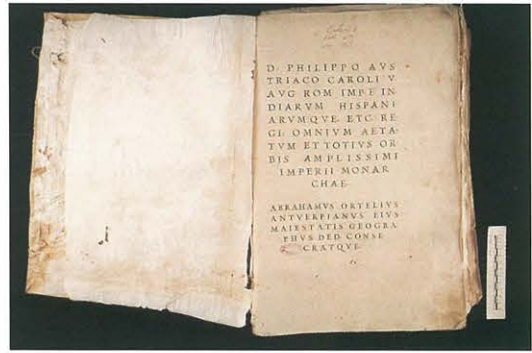 D. PHILIPPO AVS
TRIACO CAROLI V
AVG ROM IMPE IN
DIARVM HISPANI
ARVMQVE. ETC. RE
GI. OMNIVM AETA
TVM ET TOTIVS OR
BIS AMPLISSIMI
IMPERII MONAR
CHAE.
ABRAHAMVS ORTELIVS
ANTVERPIANVS EIVS
MAIESTATIS GEOGRA
PHVS DED. CONSE
CRATQVE.